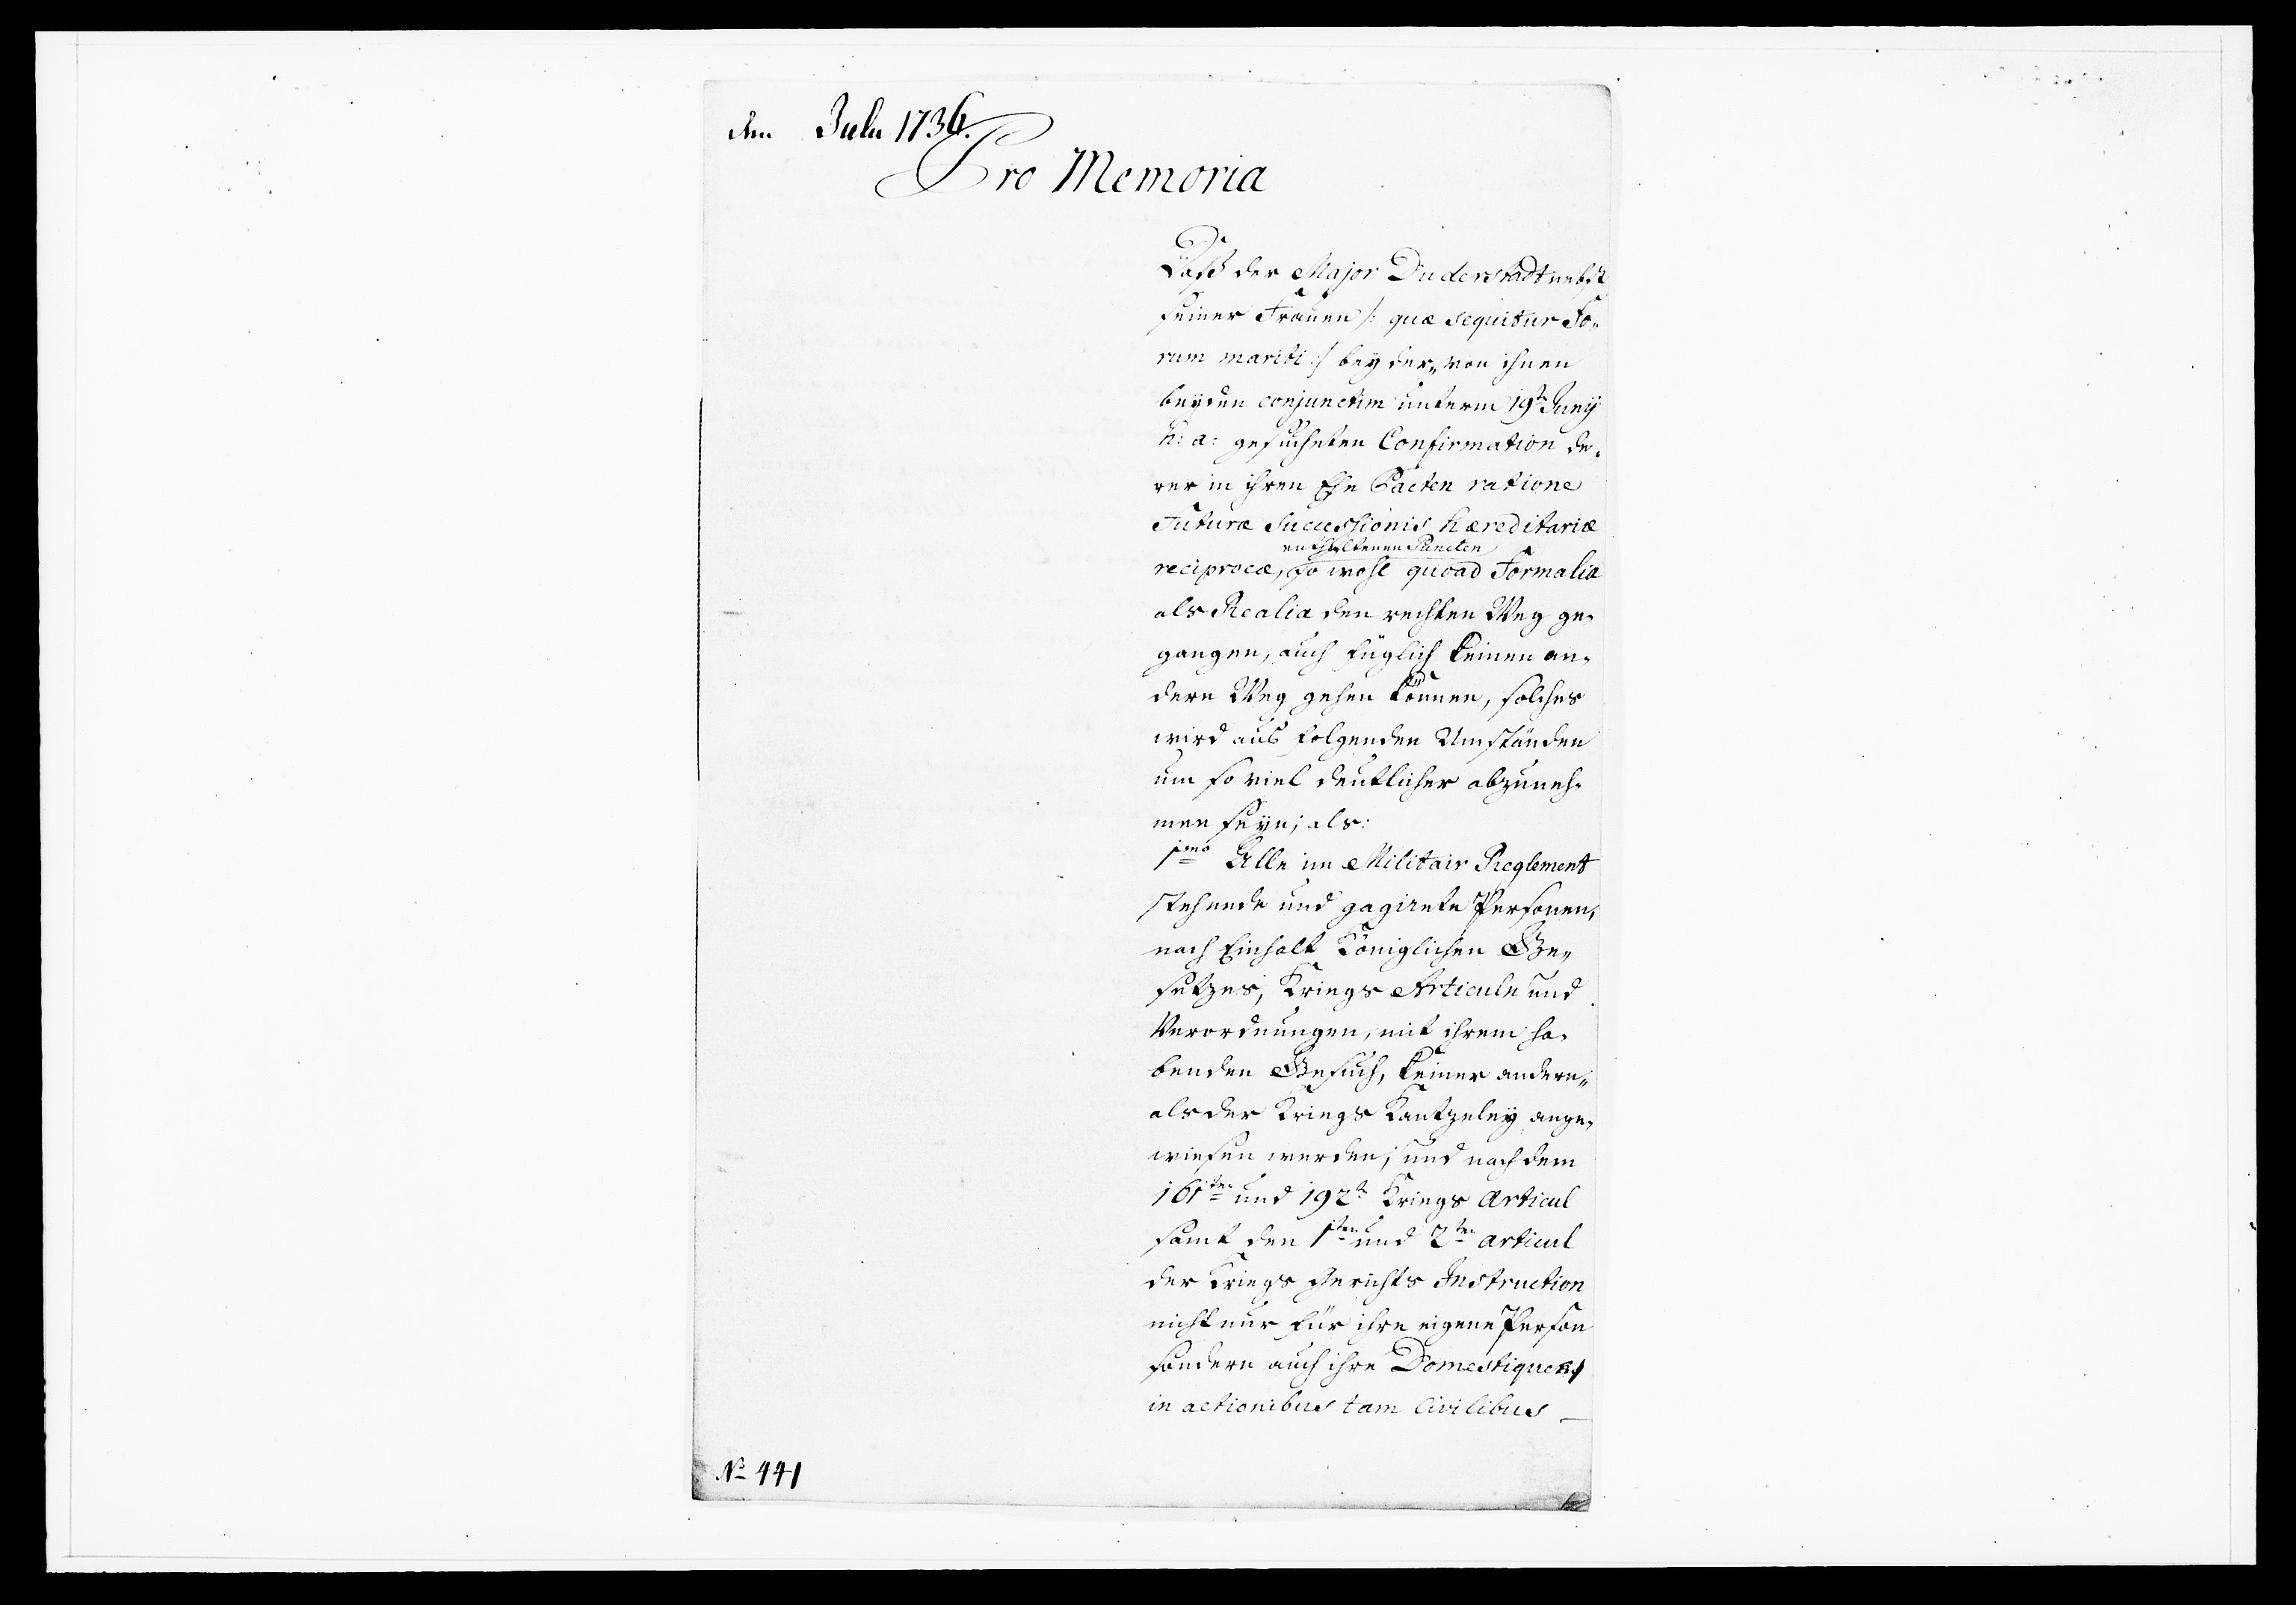 den Julii 1736.
Pro Memoria
Daß der Major Duderstadt nebst
seiner Frauen /: quæ sequitur Fo„
rum mariti :/ bey der„ von ihnen
beyden conjunctim unterm 19t. Junij
h: a: gesucheten Confirmation de„
rer in ihren Ehe Pacten ratione
Futuræ Successionis hæreditariæ
enthaltenen Puncten
reciprocæ, so wohl quoad Formalia
als Realia den rechten Weg ge„
gangen, auch füglich keinen an„
dern Weg gehen können, solches
wird aus folgenden Umständen
um so viel deutlicher abzuneh„
men seyn; als:
1mo Alle im Militair Reglement
stehende und gagirete Personen,
nach Einhalt Königlichen Ge„
setzes, Kriegs Articuln und
Verordnungen, mit ihrem ha„
benden Gesuch, keiner andern„
als der Kriegs Cantzeley ange„
wiesen werden; und nach dem
161ten und 192t. Kriegs Articul
samt den 1ten und 2ten articul
der Kriegs Gerichts Instruction
nicht nur für ihre eigene Person
sondern auch ihre Domestiquen,
in actionibus tam Civilibus —
No 441